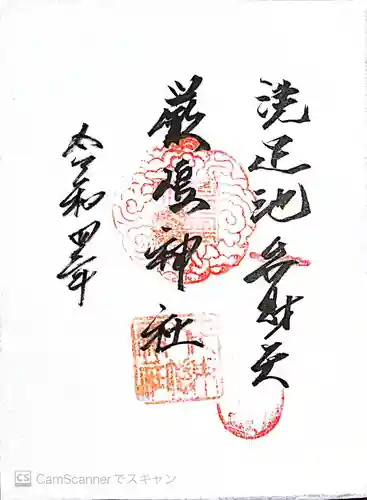 洗足池弁財天
厳島神社
令和四年
CS CamScannerでスキャン